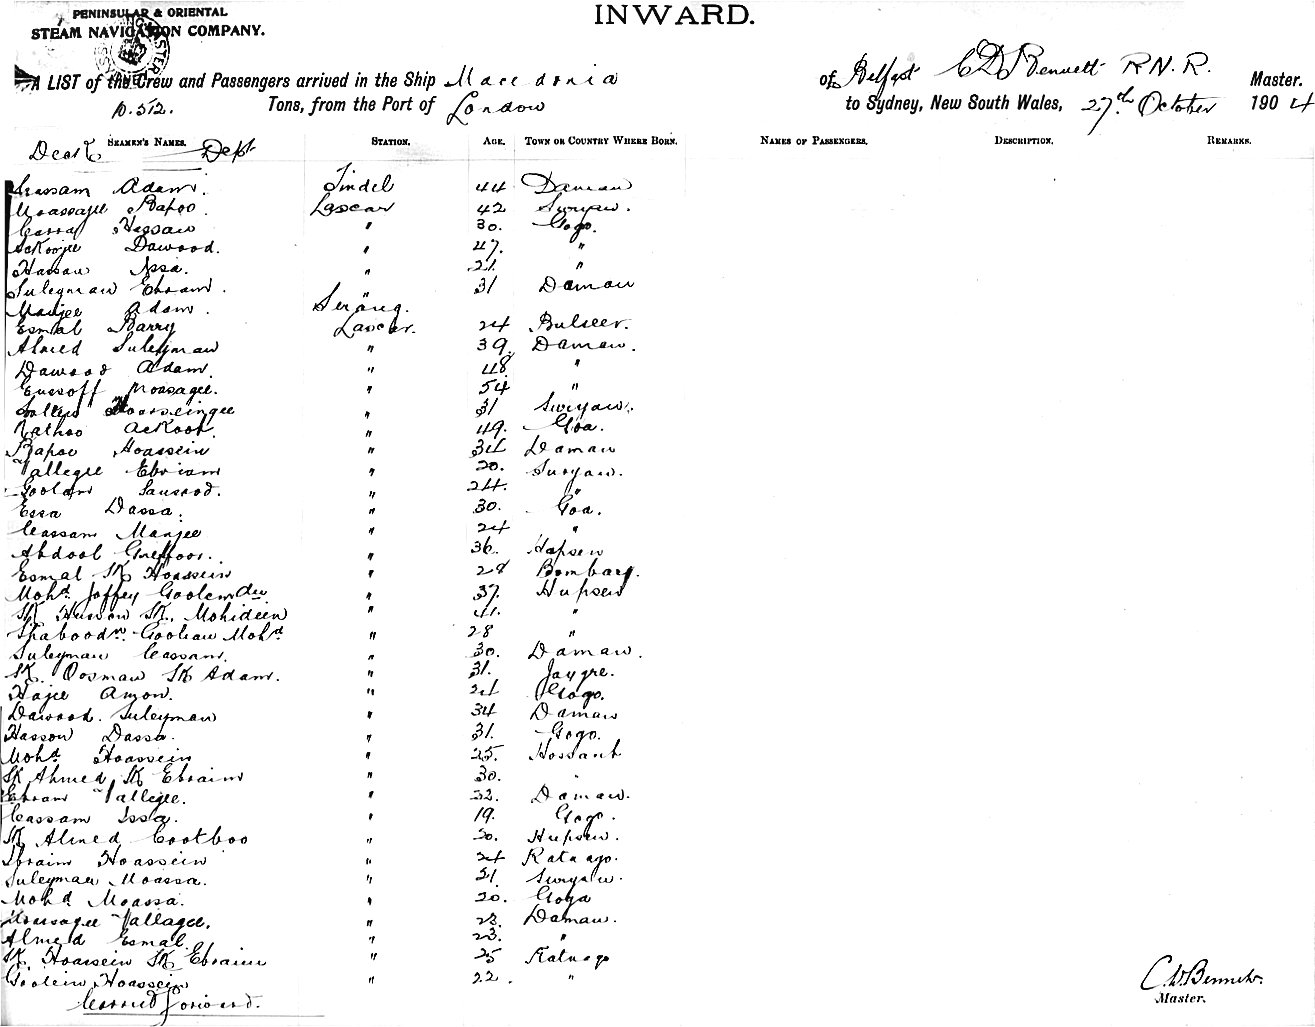 PENINSULAR & ORIENTAL
STEAM NAVIGATION COMPANY.
INWARD.
A LIST of the Crew and Passengers arrived in the Ship Macedonia of Belfast C D Bennett R.N.R. Master.
10.512. Tons, from the Port of London to Sydney, New South Wales, 27th October 1904
Deck Dept
SEAMEN'S NAMES. STATION. AGE. TOWN OR COUNTRY WHERE BORN. NAMES OF PASSENGERS. DESCRIPTION. REMARKS.
Adam. Tindel 44 Daman
Moassagee Bapoo. Lascar 42
Hassan " 30. Gogo.
Dawood. " 47. "
Hassan Issa. " 21. "
Suleyman Ebram. " 31 Daman
Manjee Adam. Serang.
Esmal Barry Lascar. 24 Bulseer.
Ahmed Suleyman " 39. Daman.
Dawood Adam. " 48 "
Eussoff Moosagee. " 54 "
Hoosseingee " 31
Nathoo " 49. Goa.
Bapoo Hoassein " 34 Daman
Vallegee Ebriam " 20.
Goolam " 24. "
Essa Dassa. " 30. Goa.
Cassam Manjee " 24 "
Abdool Guffoor. " 36. Hapsen
Esmal SK Hoassein " 28 Bombay.
Mohd. Joffey " 37. Hupsen
SK Hussen SK. Mohideen " 41. "
Goolam Mohd " 28 "
Suleyman Cassam. " 30. Daman.
SK. Oosman SK Adam. " 31. Jaygre.
Hajee Amon. " 21 Gogo.
Dawood. Suleyman " 34 Daman
Hasson Dassa. " 31. Gogo.
Mohd. Hoassein " 25.
SK Ahmed SK Ebraim " 30. "
Ebram Vallegee. " 32. Daman.
Cassam Issa. " 19. Gogo.
SK Ahmed Cootboo " 30. Hupsen.
Ebraim Hoassein " 24 Katnago.
Suleyman Moassa. " 21.
Mohd Moassa. " 20. Goga
Moosagee Vallagee. " 23. Daman.
Ahmed Esmal. " 23. "
SK. Hoassein SK Ebraim " 25 Katnogo
Goolein Hoassein " 22. "
Carried forward.
C. D. Bennett.
Master.